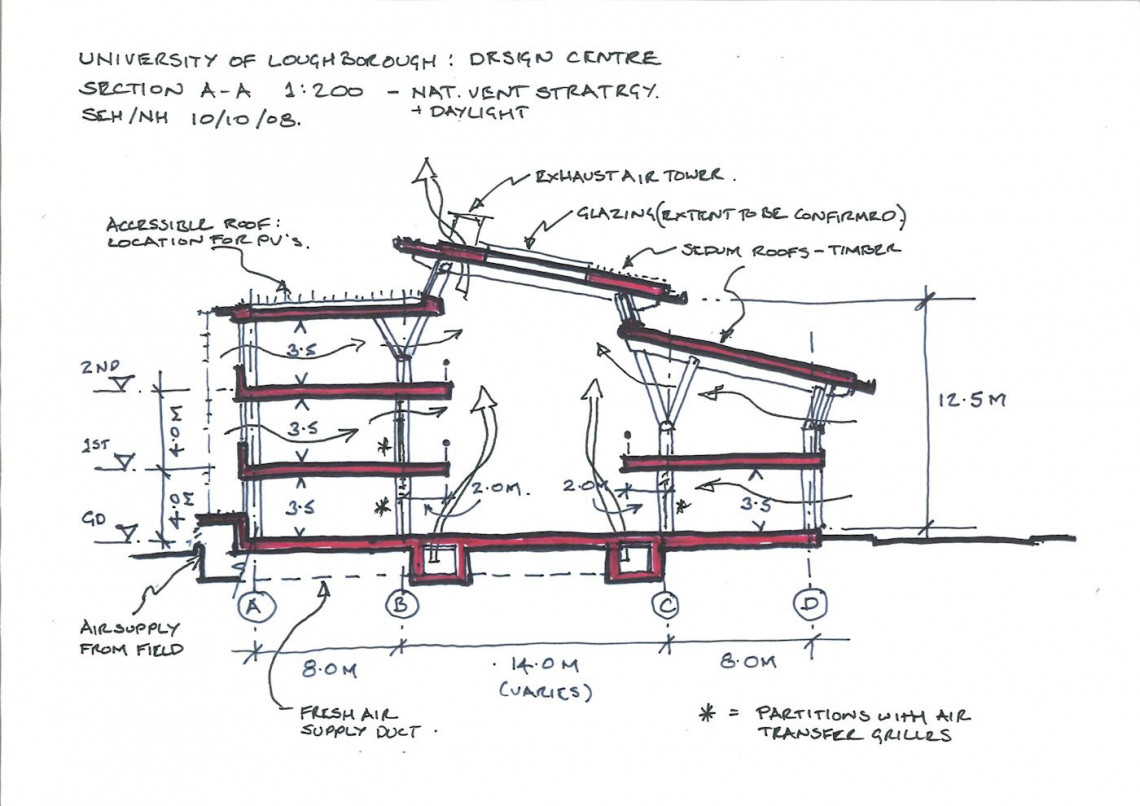 UNIVERSITY OF LOUGHBOROUGH : DESIGN CENTRE
SECTION A-A 1:200 - NAT. VENT STRATEGY.
+ DAYLIGHT
SEH/NH 10/10/08.
EXHAUST AIR TOWER.
GLAZING (EXTENT TO BE CONFIRMED)
ACCESSIBLE ROOF:
LOCATION FOR PV'S.
SEDUM ROOFS - TIMBER
3.5
2ND
12.5M
4.0M
3.5
*
1ST
4.0M
3.5
*
2.0M.
2.0M.
*
3.5
GD
A
B
C
D
AIR SUPPLY
FROM FIELD
8.0M
14.0M
(VARIES)
8.0M
FRESH AIR
SUPPLY DUCT.
* = PARTITIONS WITH AIR
TRANSFER GRILLES